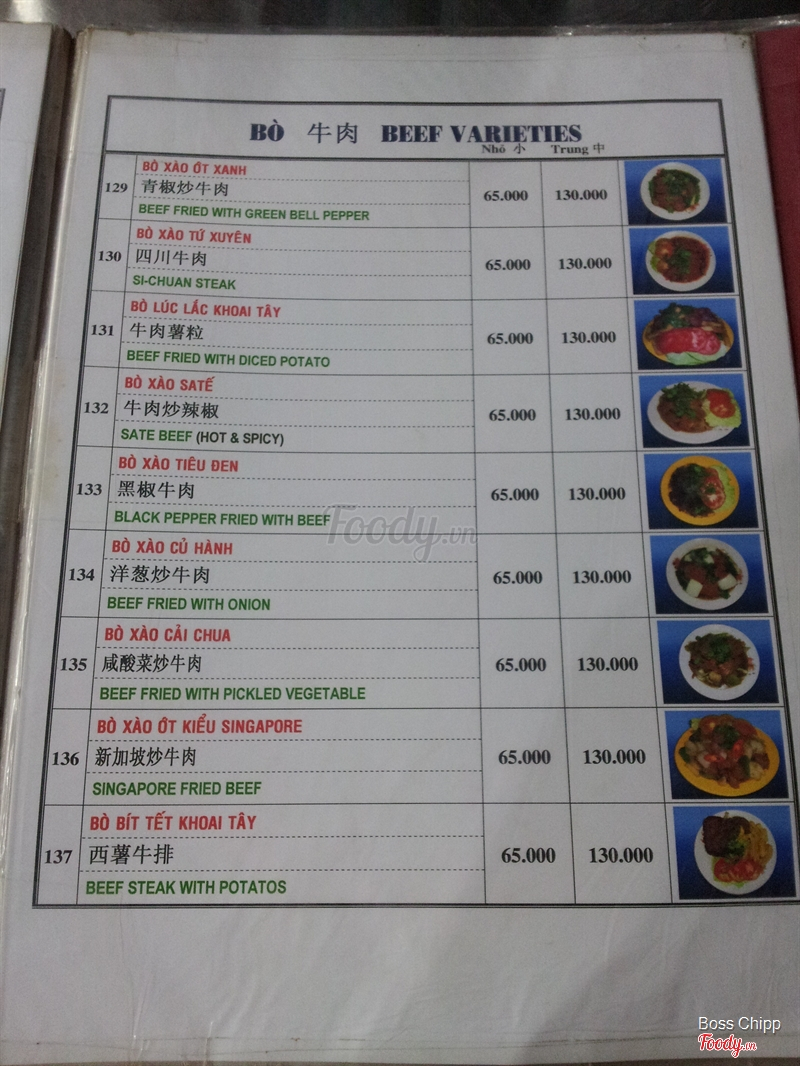 BÒ 牛肉 BEEF VARIETIES
Nhỏ 小 Trung 中
129
BÒ XÀO ỚT XANH
青椒炒牛肉
BEEF FRIED WITH GREEN BELL PEPPER
65.000 130.000
130
BÒ XÀO TỨ XUYÊN
四川牛肉
SI-CHUAN STEAK
65.000 130.000
131
BÒ LÚC LẮC KHOAI TÂY
牛肉薯粒
BEEF FRIED WITH DICED POTATO
65.000 130.000
132
BÒ XÀO SATẾ
牛肉炒辣椒
SATE BEEF (HOT & SPICY)
65.000 130.000
133
BÒ XÀO TIÊU ĐEN
黑椒牛肉
BLACK PEPPER FRIED WITH BEEF
65.000 130.000
134
BÒ XÀO CỦ HÀNH
洋葱炒牛肉
BEEF FRIED WITH ONION
65.000 130.000
135
BÒ XÀO CẢI CHUA
咸酸菜炒牛肉
BEEF FRIED WITH PICKLED VEGETABLE
65.000 130.000
136
BÒ XÀO ỚT KIỂU SINGAPORE
新加坡炒牛肉
SINGAPORE FRIED BEEF
65.000 130.000
137
BÒ BÍT TẾT KHOAI TÂY
西薯牛排
BEEF STEAK WITH POTATOS
65.000 130.000
Foody.vn
Boss Chipp
Foody.vn